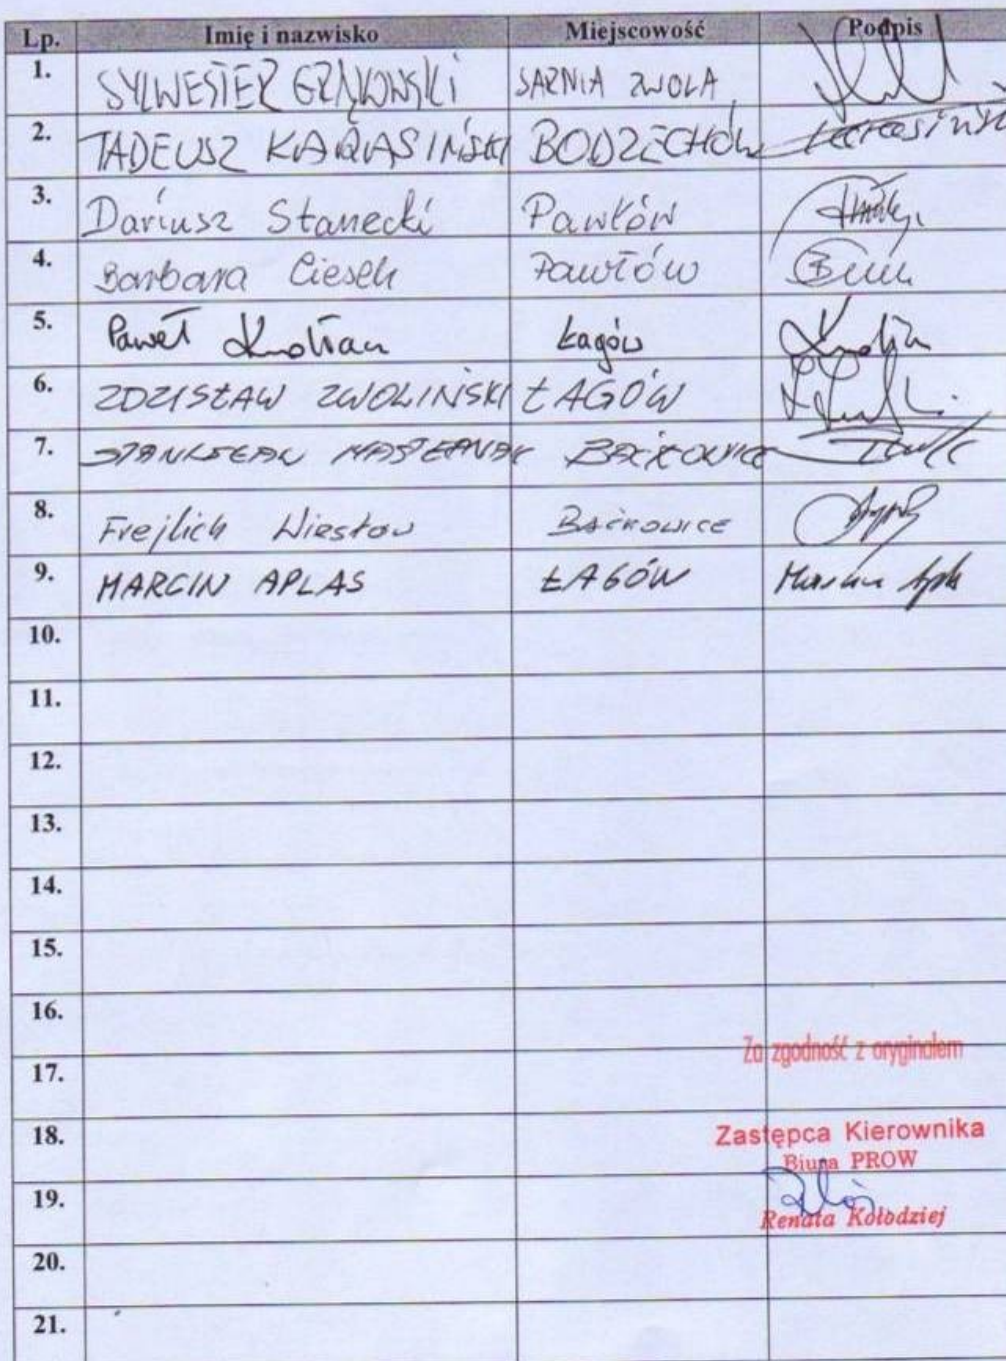 Lp. Imię i nazwisko Miejscowość Podpis
1. SYLWESTER GRĄKOWSKI SARNIA ZWOLA
2. TADEUSZ KARASIŃSKI BODZECHÓW Karasiński
3. Dariusz Stanecki Pawłów
4. Barbara Ciesek Pawłów
5. Paweł Łagów
6. ZDZISŁAW ZWOLIŃSKI ŁAGÓW
7. STANISŁAW MASTERNAK BAĆKOWICE
8. Frejlich Wiesław BAĆKOWICE
9. MARCIN APLAS ŁAGÓW
10.
11.
12.
13.
14.
15.
16.
Za zgodność z oryginałem
17.
18. Zastępca Kierownika
Biura PROW
19.
Renata Kołodziej
20.
21.